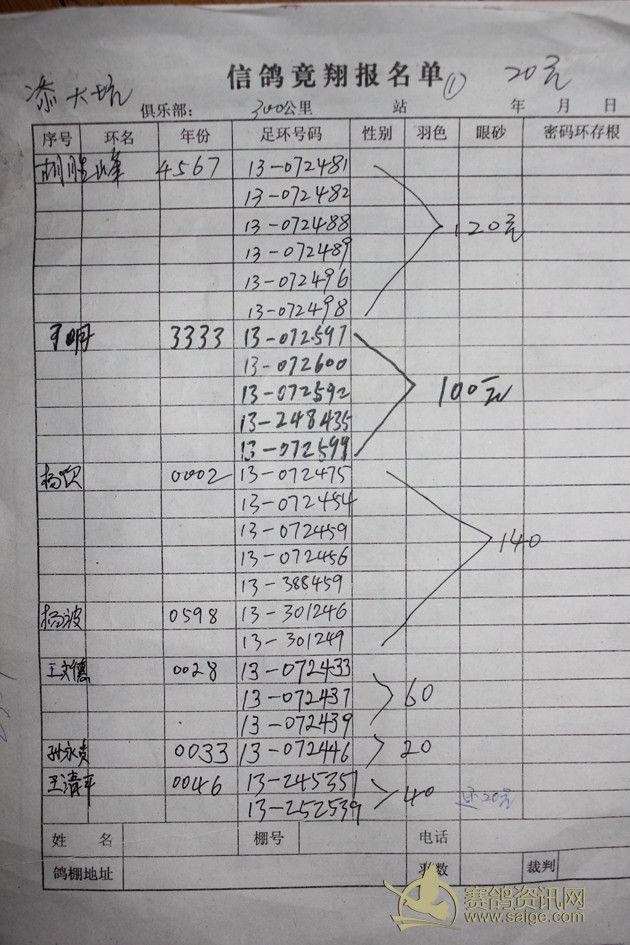 信鸽竞翔报名单① 20元
添大坑 俱乐部： 300公里 站 年 月 日
序号 环名 年份 足环号码 性别 羽色 眼砂 密码环存根
4567 13-072481
13-072482
13-072488 120元
13-072489
13-072496
13-072498
王明 3333 13-072597
13-072600
13-072592 100元
13-248435
13-072599
杨 0002 13-072475
13-072454
13-072459
13-072456 140
13-388459
杨波 0598 13-301246
13-301249
王文德 0028 13-072433
13-072437 60
13-072439
孙永贵 0033 13-072446 20
王清平 0046 13-245351 40 还20元
13-252539
姓 名 棚号 电话
鸽棚地址 羽数 裁判
赛鸽资讯网
www.saige.com